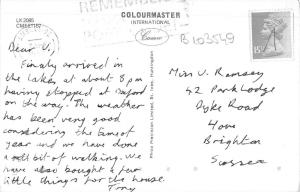 LK 2085
COLOURMASTER
INTERNATIONAL
REMEMBER
B103549
15P
Dear V,
Finally arrived in
the Lakes at about 8 pm
having stopped at
on the way. The weather
has been very good
considering the time of
year and we have done
a bit of walking. We
have also bought a few
little things for the house.
Tony
Miss V. Ramsey
42 Park Lodge
Dyke Road
Hove
Brighton
Sussex